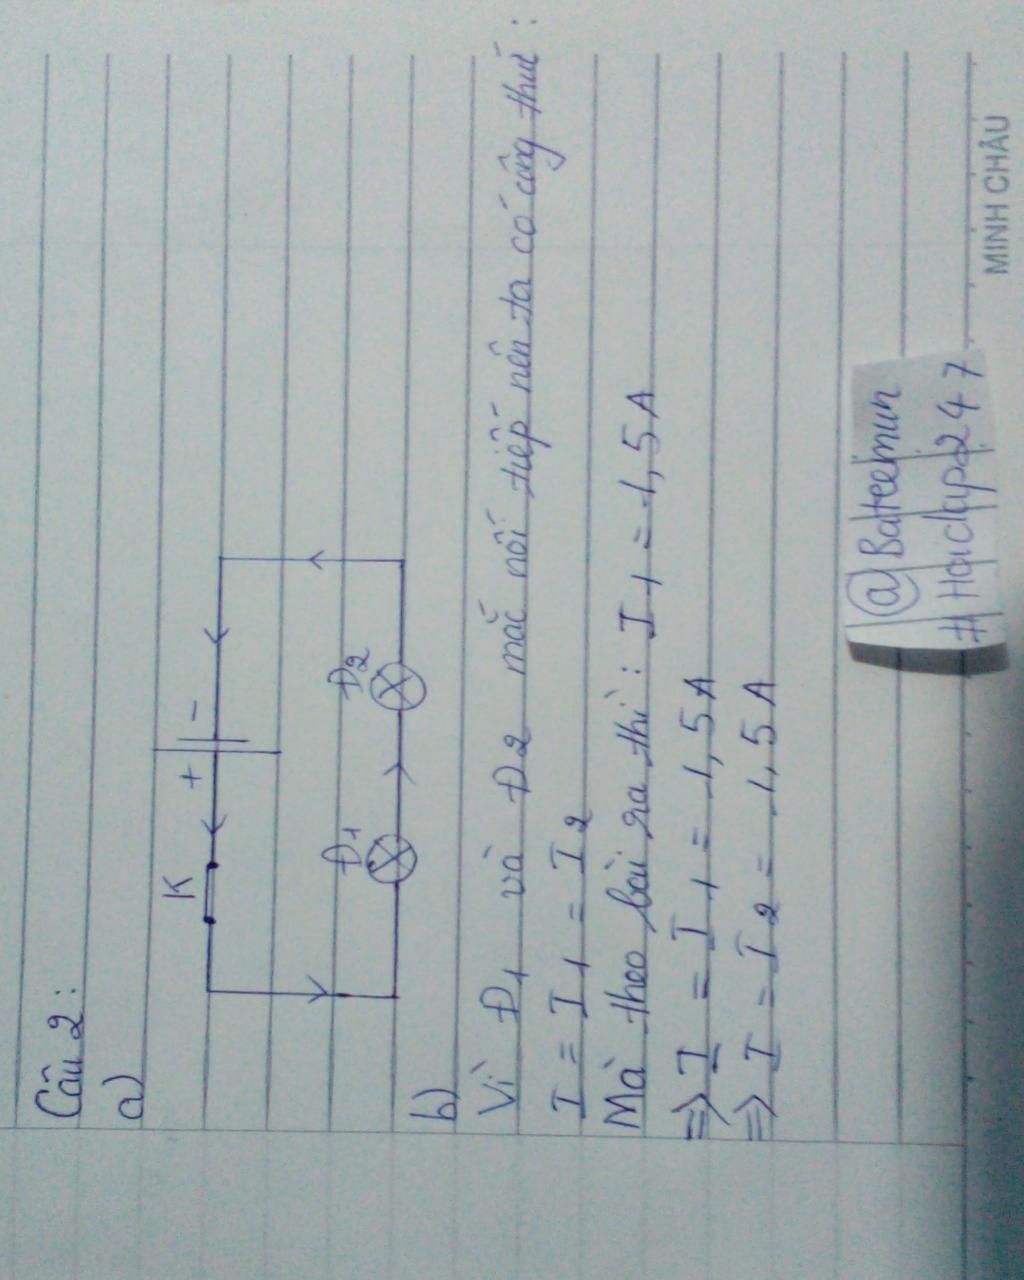 Câu 2:
a)
K
+ -
Đ1
Đ2
b)
Vì Đ1 và Đ2 mắc nối tiếp nên ta có công thức:
I = I1 = I2
Mà theo bài ra thì: I1 = 1,5A
=> I = I1 = 1,5A
=> I = I2 = 1,5A
@Bateemun
# Hoidap247
MINH CHÂU